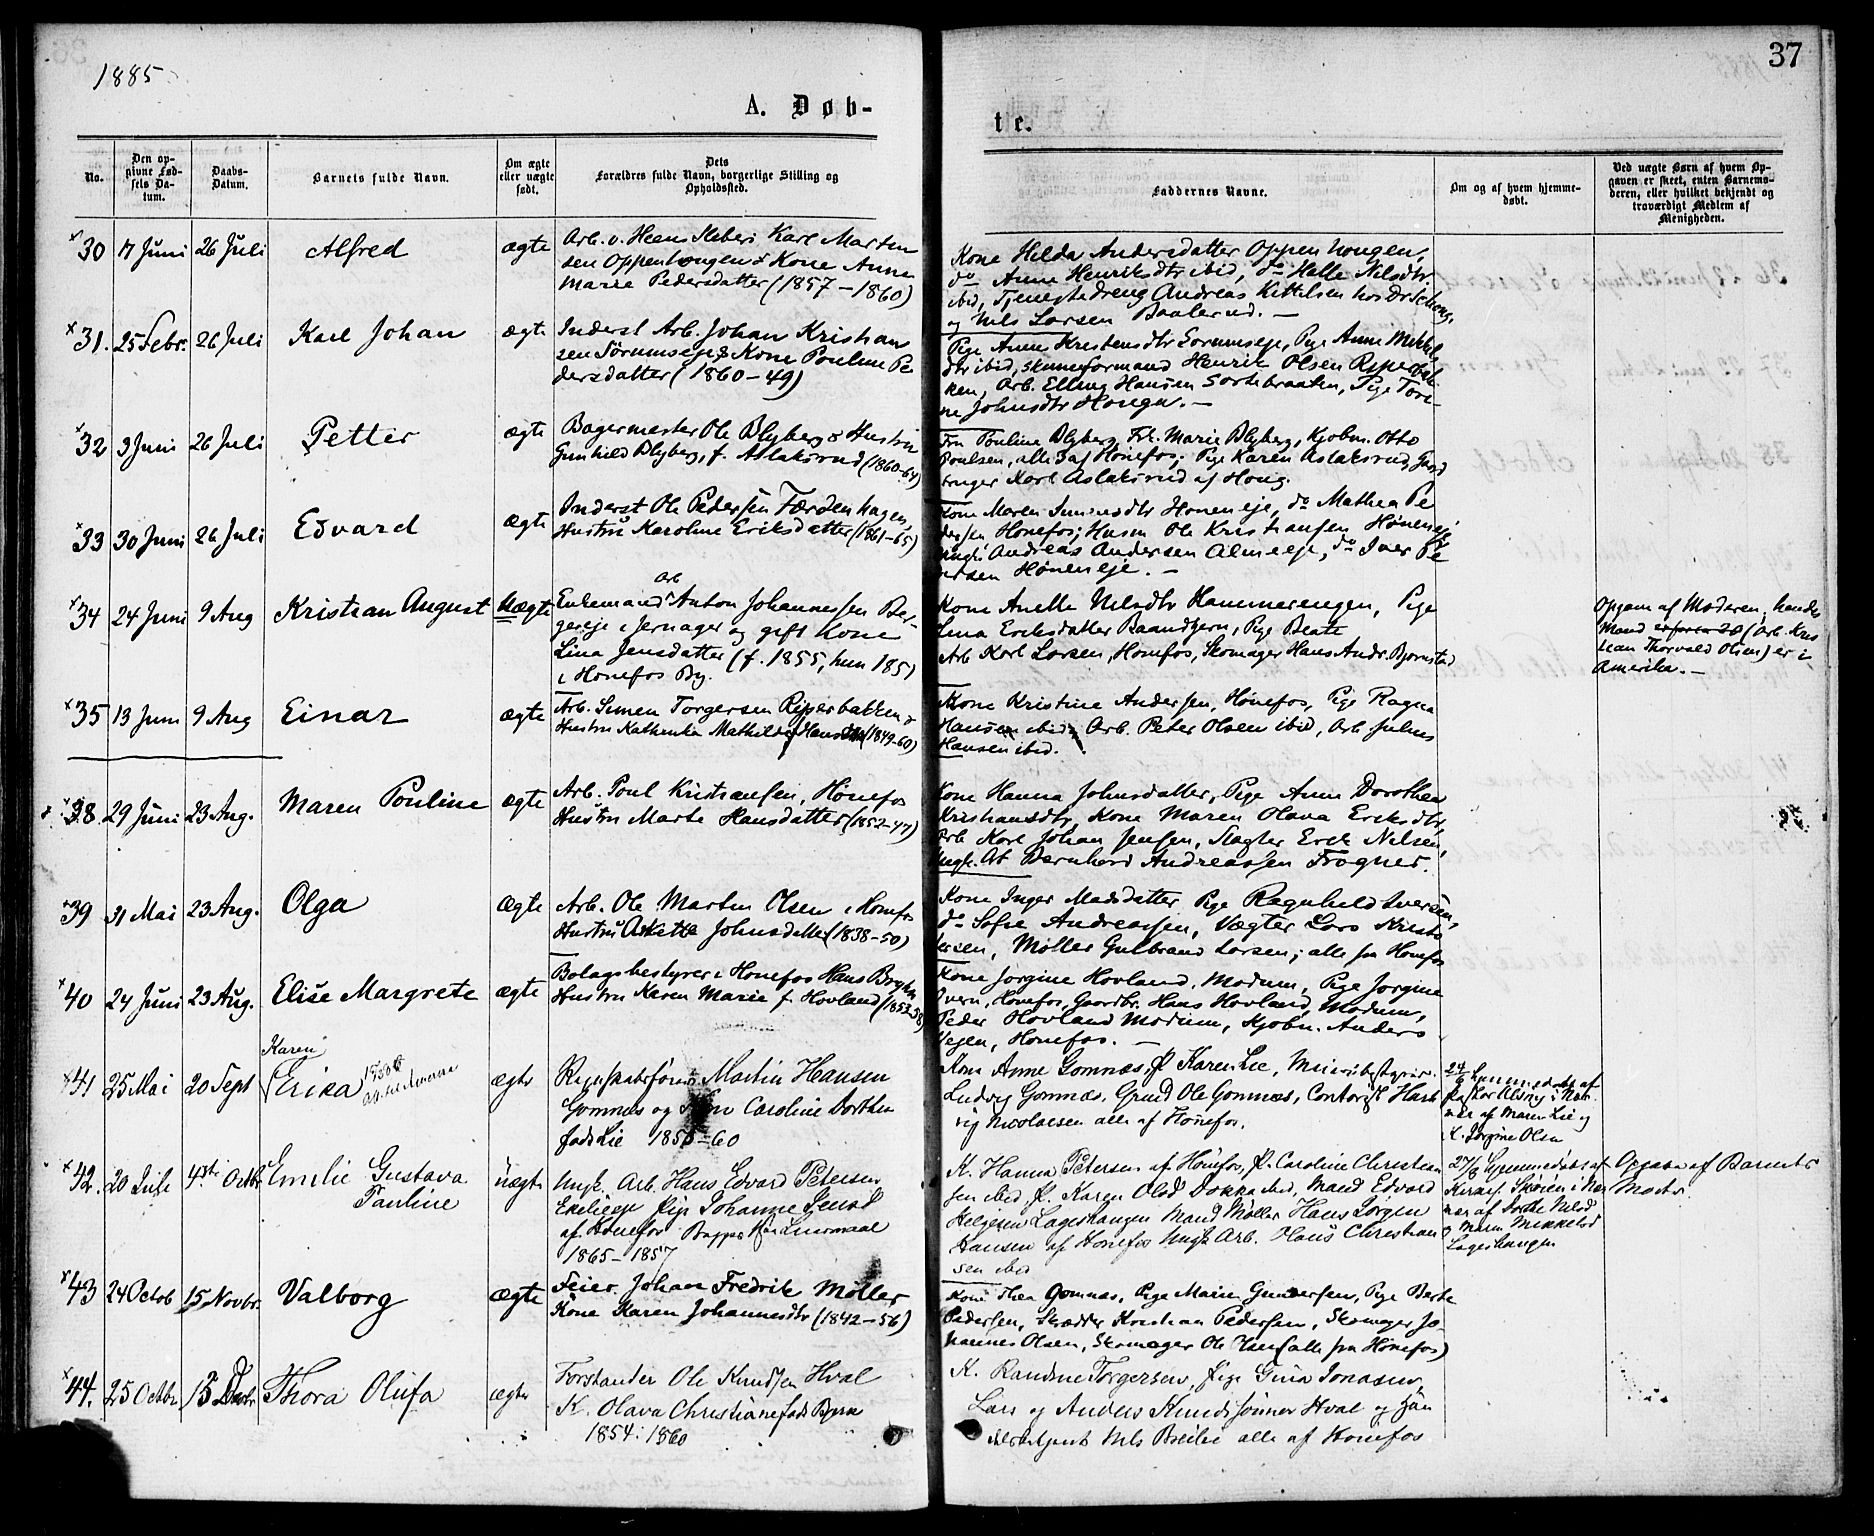 1885
37
A. Døb-
te.
No.
Den op-
givne Fød-
sels Da-
tum.
Daabs-
Datum.
Barnets fulde Navn.
Om ægte
eller uægte
født.
Dets
Forældres fulde Navn, borgerlige Stilling og
Opholdssted.
Faddernes Navne.
Om og af hvem hjemme-
døbt.
Ved uægte Børn af hvem Op-
gaven er skeet, enten Barnemo-
deren, eller hvilket bekjendt og
troværdigt Medlem af
Menigheden.
30 17 Juni 26 Juli Alfred ægte
Karl Martin
sen Oppenhougen & Kone Anne
Marie Pedersdatter (1857-1860)
Kone Helda Andersdatter Oppenhougen,
do Anne Henriksdtr ibid, do Helle Nilsdtr
ibid, Tjenestedreng Andreas Kittilsen hos
og Nils Larsen Baalerud. —
31. 25 Febr. 26 Juli Karl Johan ægte
Inderst Arb. Johan Kristian
sen Sørumseje & Kone Pouline Pe
dersdatter (1860-49)
Pige Anne Kristensdtr Sørumseje, Pige Anne Mikkels
dtr ibid, Skinneformand Henrik Olsen Ryperbak
ken, Arb. Elling Hansen Sortebraaten, Pige Tori-
ne Johnsdtr Honga. —
32 3 Juni 26 Juli Petter ægte
Bagermester Ole Blyberg & Hustru
Gunhild Blyberg, f. Aslaksrud (1860-64)
Fru Pouline Blyberg, Frk. Marie Blyberg, Kjøbm. Otto
Poulsen, alle 3 af Hønefos; Pige Karen Aslaksrud, Gaard
bruger Karl Aslaksrud af Houg.
33 30 Juni 26 Juli Edvard ægte
Inderst Ole Pedersen Færdenhagen,
Hustru Karoline Eriksdatter (1861-65)
Kone Maren Simensdtr Høneneje, do Mathea Pe
dersen Hønefos; Husm Ole Kristiansen Høneneje
Ungk. Andreas Andersen Almeeje, do Iver Pe
dersen Høneneje. —
34 24 Juni 9 Aug Kristian August Uægte
Arb
Enkemand Anton Johannessen Ber-
gereje i Jernager og gift Kone
Lina Jensdatter (f. 1855, hun 185)
i Hønefos By.
Kone Anette Nilsdtr Hammerengen, Pige
Lina Eriksdatter Baandtjern, Pige Beate
Arb Karl Larsen, Hønefos, Skomager Hans Andr. Bjørnstad
Opgavn af Moderen, hendes
Mand er forsn 20 (Arb. Kris
tian Thorvald Olsen) er i
Amerika. —
35 13 Juni 9 Aug Einar ægte
Arb. Simen Torgersen Ryperbakken &
Hustru Kathinka Mathilde f Hansdtr (1849-60)
Kone Kristine Andersen, Hønefos, Pige Ragna
Hansen ibid, Arb. Peter Olsen ibid, Arb. Julius
Hansen ibid.
38 29 Juni 23 Aug. Maren Pouline ægte
Arb. Poul Kristiansen, Hønefos
Hustru Marte Hansdatter (1852-47)
Kone Hanna Johnsdatter, Pige Anne Dorothea
Kristiansdtr, Kone Maren Olava Eriksdtr,
Arb Karl Johan Jensen, Slagter Erik Nilsen,
Ungk. Arb Bernhard Andreassen Frogner.
39 31 Mai 23 Aug. Olga Ægte
Arb. Ole Martin Olsen i Hønefos
Hustru Johnsdatter (1838-50)
Kone Inger Madsdatter Pige Ragnhild Iversen,
do Sofie Andreassen, Vægter Lars Kristo
fersen, Møller Gulbrand Larsen; alle fra Hønefos
40 24 Juni 23 Aug. Elise Margrete ægte
Bolagsbestyrer i Hønefos Hans
Hustru Karen Marie f. Hovland (1853-58)
Kone Jørgine Hovland, Modum, Pige Jørgine
Overn, Hønefos, Gaardbr. Hans Hovland, Modum,
Peder Hovland Modum, Kjøbm. Anders
Vegen, Hønefos. —
Karen
41 25 Mai 20 Sept Erika ægte
Regnskabsfører Martin Hansen
Gomnæs og Caroline Dorthea
født Lie 1855-60
Kone Anne Gomnæs, P. Karen Lie,
Ludvig Gomnæs, Grund Ole Gomnæs, Contorist Hart
vig Nicolaisen alle af Hønefos.
Hjemmedøbt af
nær af Maren Lie og
K. Jørgine Olsen
42. 20 Juli 4de Octbr Emilie Gustava
Pauline uægte
Ungk. Arb. Hans Edvard Petersen
Pige Johanne Jensd
af Hønefos
1865-1857
K. Hanna Petersen af Hønefos, P. Caroline Christian
sen ibid, P. Karen Olsd Dokka ibid, Mand Edvard
Helgesen Lageshaugen Mand Møller Hans Jørgen
Hansen af Hønefos Ungk Arb. Olaus Christian
sen ibid
27/8 hjemmedøbt af
Kirkes. Skøien i Næ
nær af Dorthe Nilsd
og Maren Mikkelsd
Lageshaugen
Opgave af Barnets
Moder.
43 24 Octob 15 Novbr. Valborg ægte
Feier Johan Fredrik Møller
Kone Karen Johannesdtr (1842-56)
Kone Thea Gomnæs, Pige Marie Gundersen, Pige Berte
Pedersen, Skrædder Kristian Pedersen, Skomager Jo-
hannes Olsen, Skomager Ole Olsen (alle fra Hønefos)
44. 25 Octbr 13 Decbr Thora Olufa ægte
Forstander Ole Knudsen Hval
K. Olava Christiane født Bjerke
1854. 1860
K. Randine Torgersen, Pige Gina Jonasen,
Lars og Anders Knudssønner Hval og Han
delsbetjent Nils Breilie alle af Hønefos